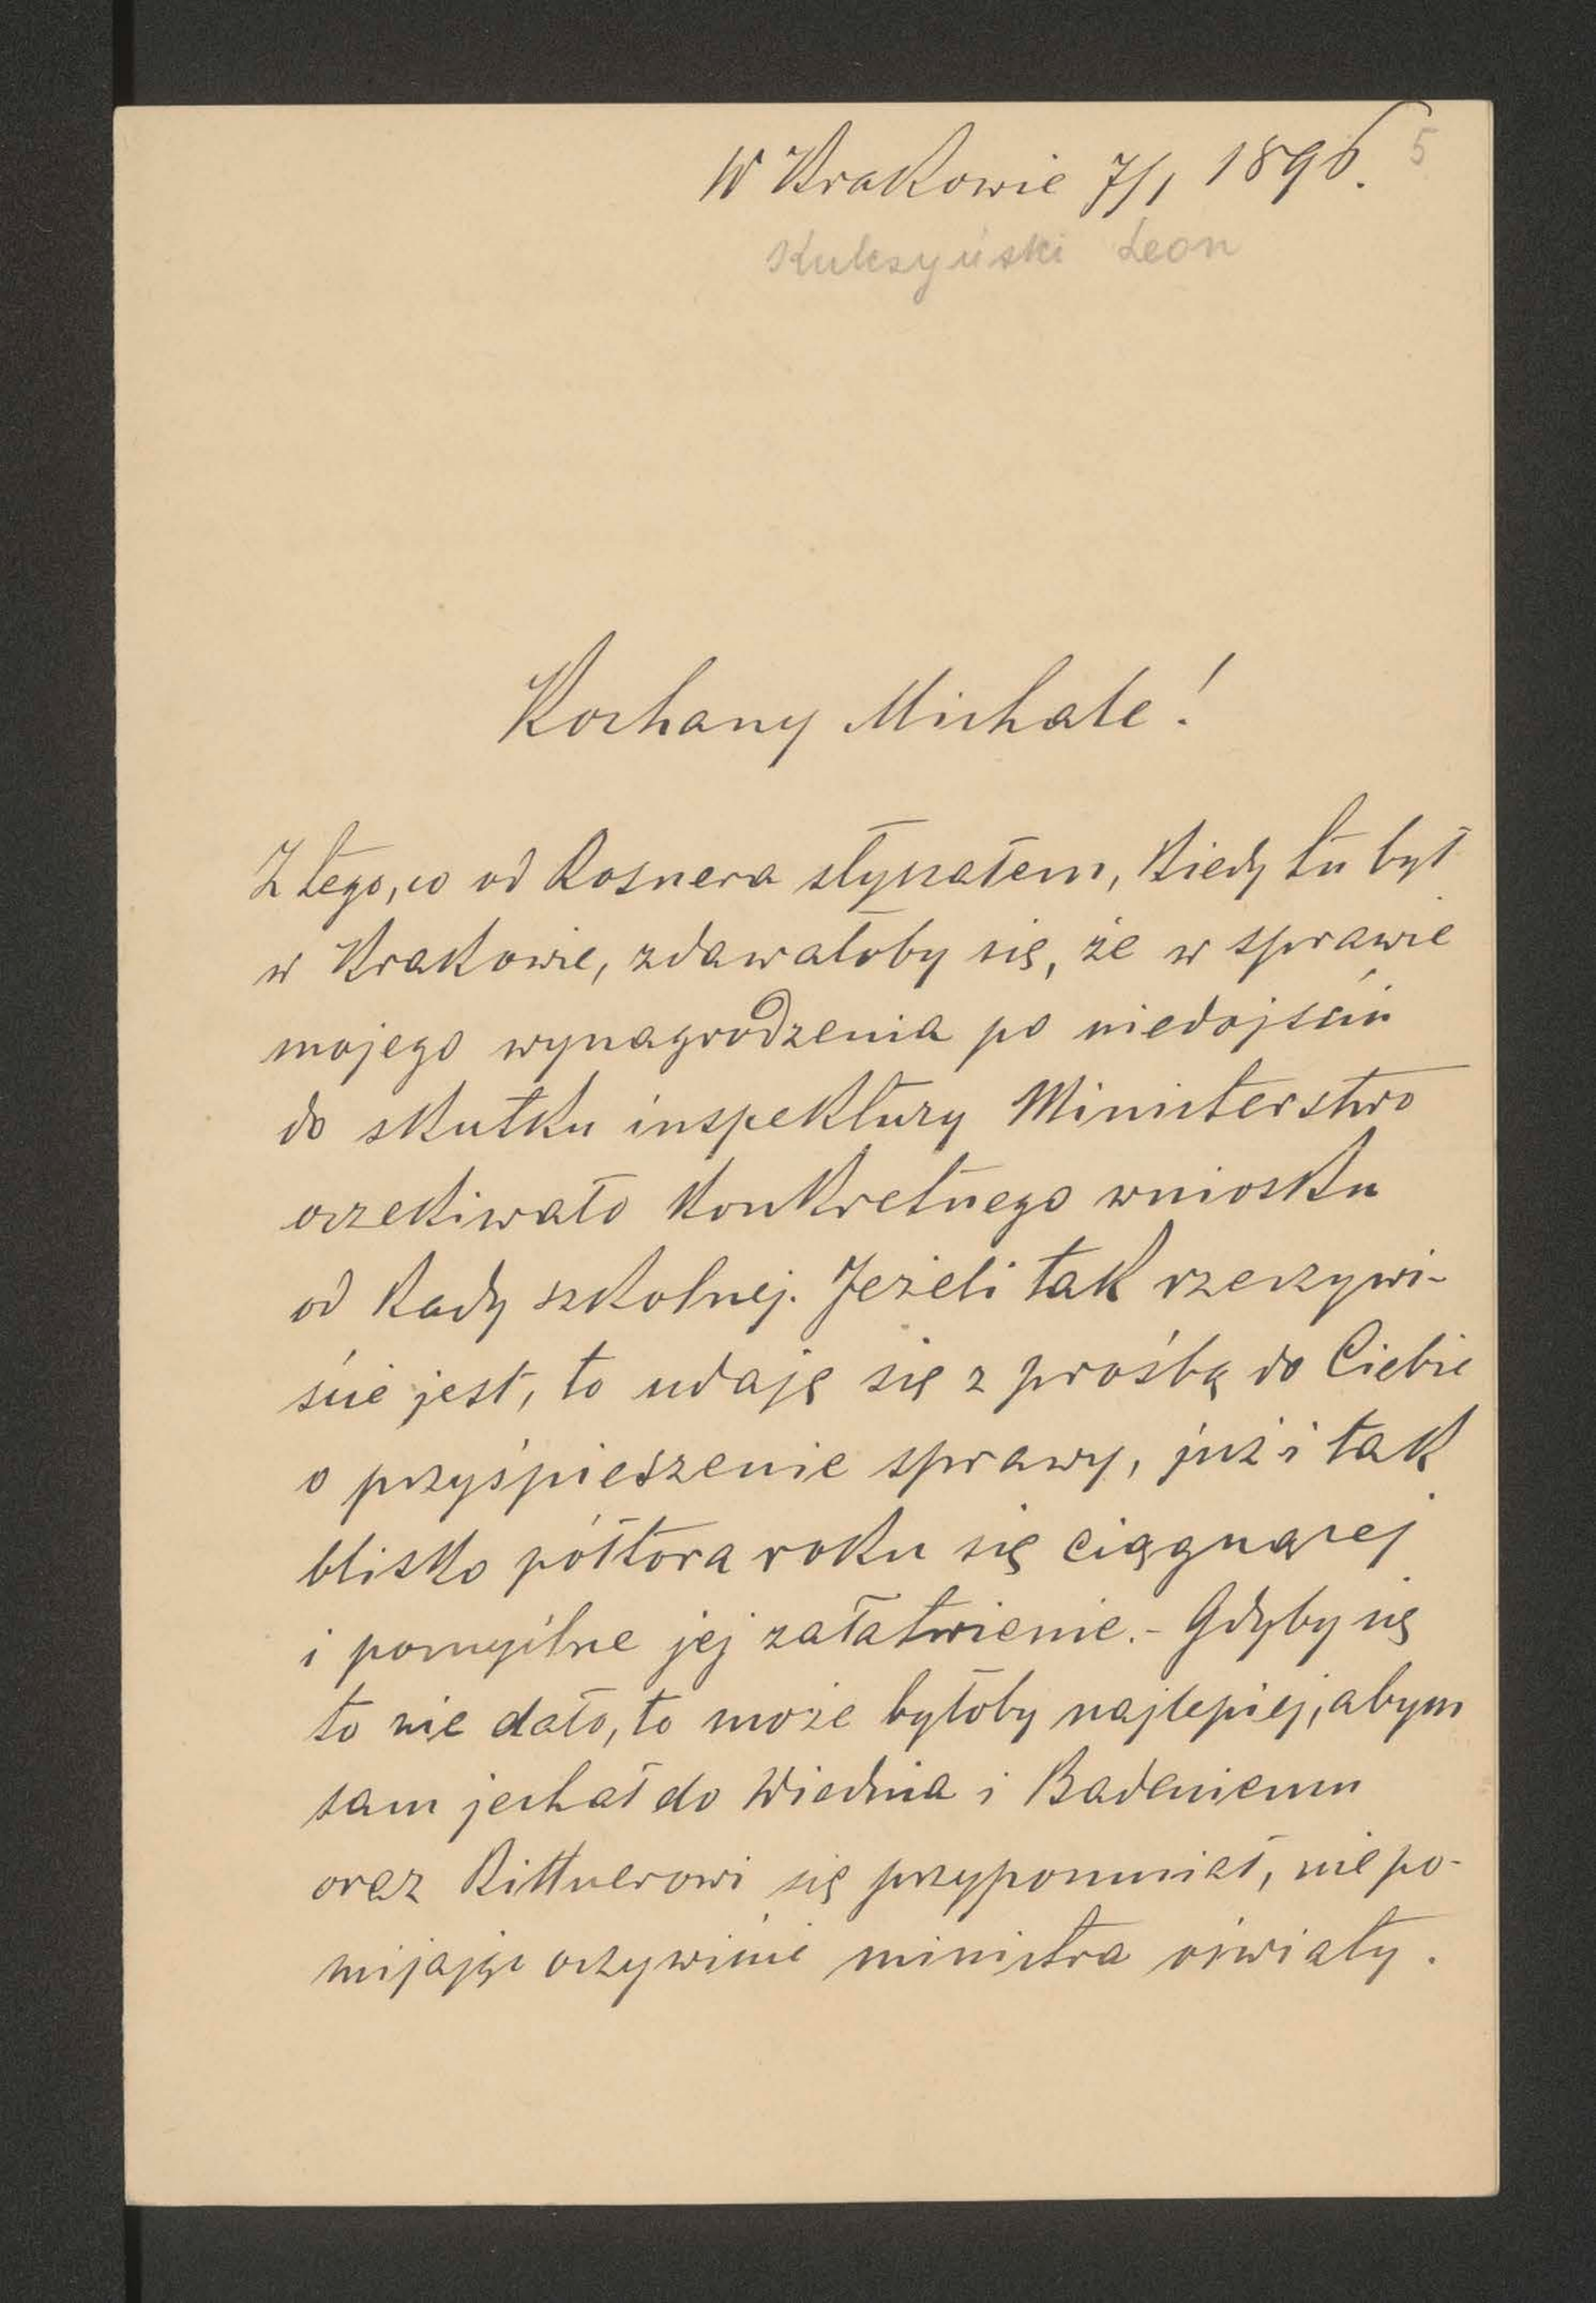 W Krakowie 7/1 1896.
5
Kulczyński Leon
Kochany Michale!
Z tego, co od Rosnera słyszałem, kiedy tu był
w Krakowie, zdawałoby się, że w sprawie
mojego wynagrodzenia po niedojściu
do skutku inspektury Ministerstwo
oczekiwało konkretnego wniosku
od Rady szkolnej. Jeżeli tak rzeczywi-
ście jest, to udaję się z prośbą do Ciebie
o przyśpieszenie sprawy, już i tak
blisko półtora roku się ciągnącej
i pomyślne jej załatwienie.- Gdyby się
to nie dało, to może byłoby najlepiej, abym
sam jechał do Wiednia i Badeniemu
oraz Rittnerowi się przypomniał, nie po-
mijając oczywiście ministra oświaty.